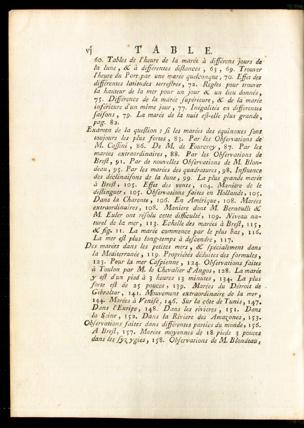 vj TABLE.
60. Tables de l'heure de la marée à différens jours de
la lune, & à différentes distances, 65, 69. Trouver
l'heure du Port par une marée quelconque, 70. Effet des
différentes latitudes terrestres, 72. Regles pour trouver
la hauteur de la mer pour un jour & un lieu donnés,
75. Différence de la marée supérieure, & de la marée
inférieure d'un même jour, 77. Inégalités en différentes
saisons, 79. La marée de la nuit est-elle plus grande,
pag. 82.
Examen de la question; si les marées des équinoxes sont
toujours les plus fortes, 83. Par les Observations de
M. Cassini, 86. De M. de Fourcroy, 87. Par les
marées extraordinaires, 88. Par les Observations de
Brest, 91. Par de nouvelles Observations de M. Blon-
deau, 95. Par les marées des quadratures, 98. Influence
des déclinaisons de la lune, 99. La plus grande marée
à Brest, 103. Effet des vents, 104. Maniere de le
distinguer, 105. Observations faites en Hollande, 105.
Dans la Charente, 106. En Amérique, 108. Marées
extraordinaires, 108. Maniere dont M. Bernoulli &
M. Euler ont résolu cette difficulté, 109. Niveau na-
turel de la mer, 113. Echelle des marées à Brest, 115,
& fig. 11. La marée commence par le plus bas, 116.
La mer est plus long-temps à descendre, 117.
Des marées dans les petites mers, & spécialement dans
la Méditerranée, 119. Propriétés déduites des formules,
123. Pour la mer Caspienne, 124. Observations faites
à Toulon par M. le Chevalier d'Angos, 128. La marée
y est d'un pied à 3 heures 13 minutes, 134. La plus
forte est de 25 pouces, 139. Marées du Détroit de
Gibraltar, 141. Mouvement extraordinaire de la mer,
144. Marées à Venise, 146. Sur la côte de Tunis, 147.
Dans l'Euripe, 148. Dans les rivieres, 151. Dans
la Seine, 152. Dans la Riviere des Amazones, 153.
Observations faites dans différentes parties du monde, 156.
A Brest, 157. Marées moyennes de 18 pieds 3 pouces
dans les syzygies, 158. Observations de M. Blondeau,